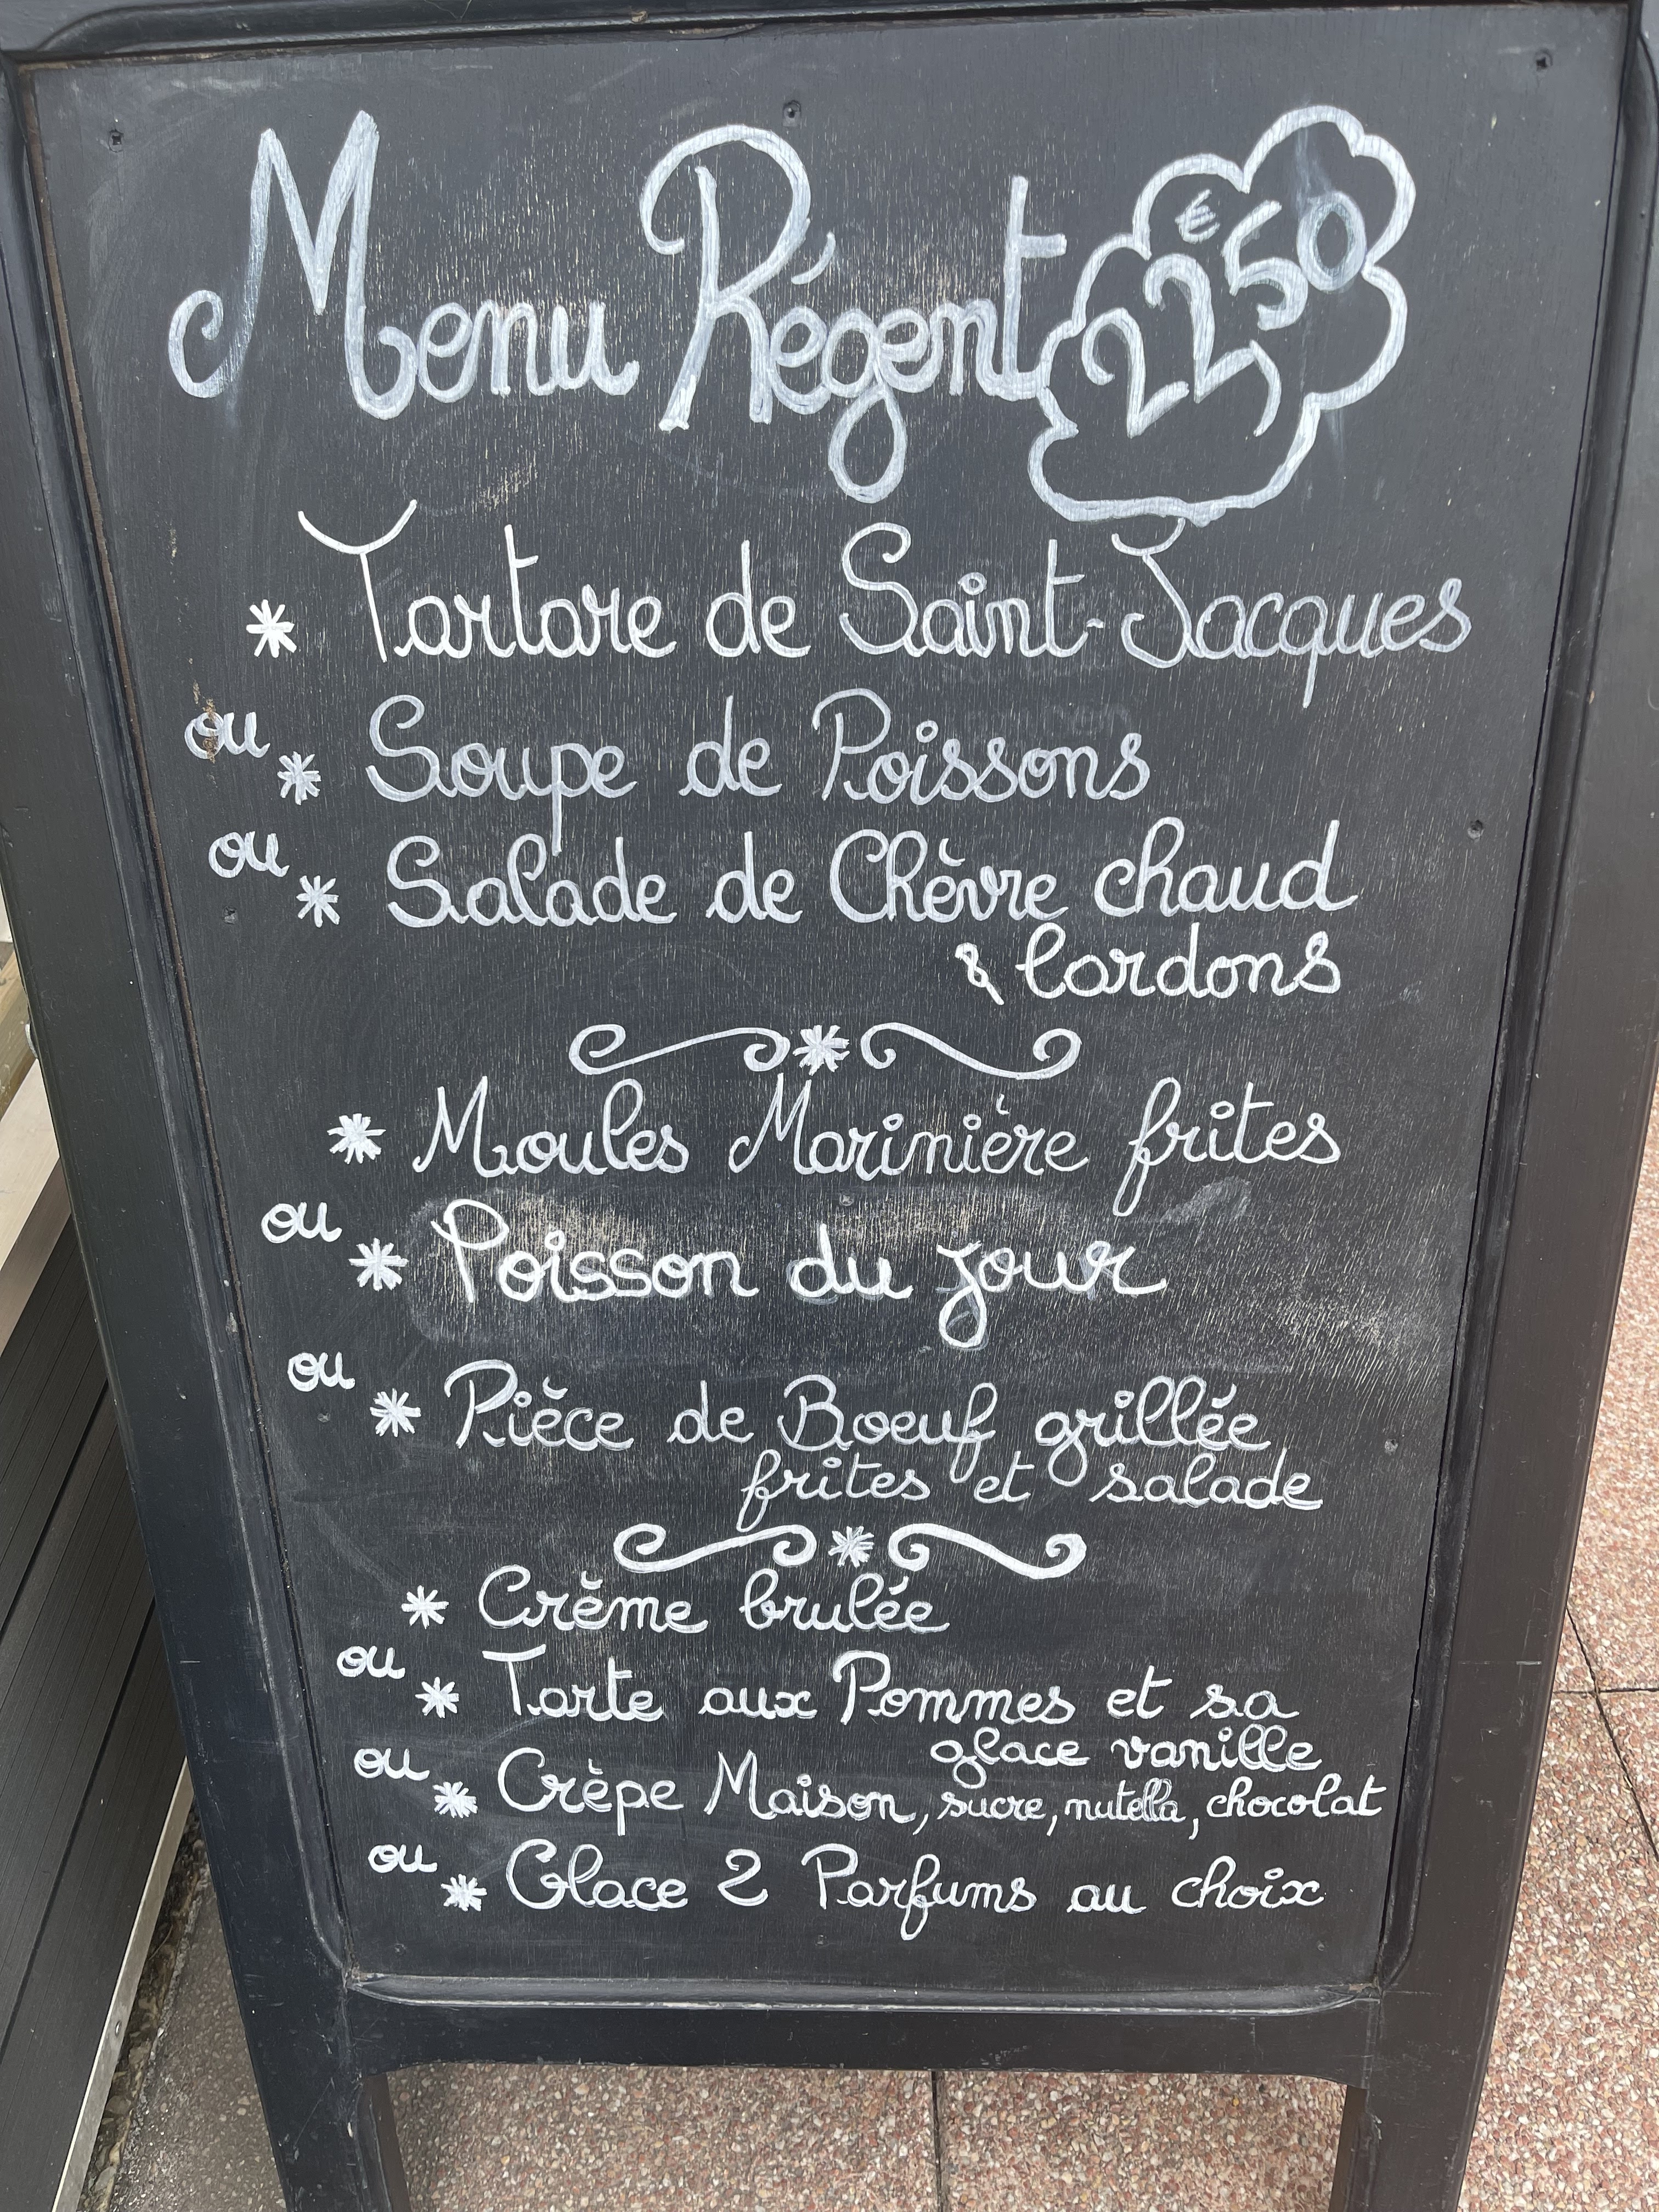 Menu Régent 22€50
* Tartare de Saint-Jacques
ou
* Soupe de Poissons
ou
* Salade de Chèvre chaud
& lardons
* Moules Marinière frites
ou
* Poisson du jour
ou
* Pièce de Boeuf grillée
frites et salade
* Crème brulée
ou
* Tarte aux Pommes et sa
glace vanille
ou
* Crèpe Maison, sucre, nutella, chocolat
ou
* Glace 2 Parfums au choix